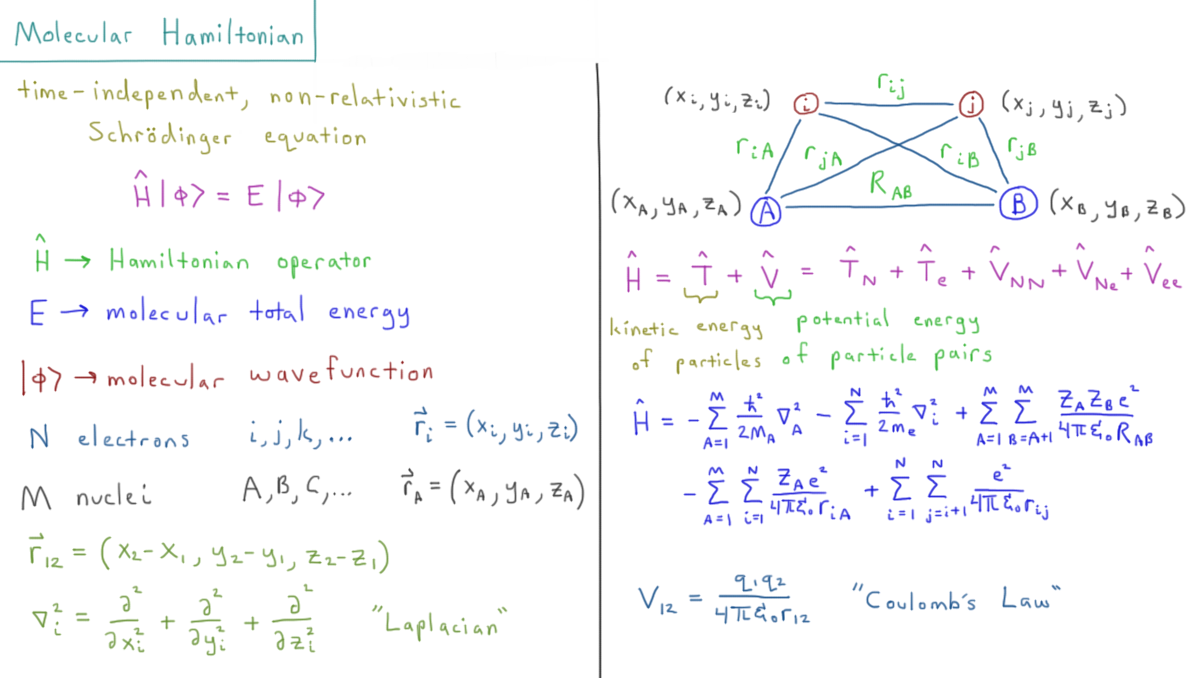 Molecular Hamiltonian
time-independent, non-relativistic
Schrödinger equation
Ĥ|ϕ⟩ = E|ϕ⟩
Ĥ → Hamiltonian operator
E → molecular total energy
|ϕ⟩ → molecular wavefunction
N electrons i, j, k, ... r⃗ᵢ = (xᵢ, yᵢ, zᵢ)
M nuclei A, B, C, ... r⃗_A = (x_A, y_A, z_A)
r⃗₁₂ = (x₂-x₁, y₂-y₁, z₂-z₁)
∇ᵢ² = ∂²/∂xᵢ² + ∂²/∂yᵢ² + ∂²/∂zᵢ² "Laplacian"
r_ij
(xᵢ, yᵢ, zᵢ) i j (xⱼ, yⱼ, zⱼ)
r_iA r_jA r_iB r_jB
R_AB
(x_A, y_A, z_A) A B (x_B, y_B, z_B)
Ĥ = T̂ + V̂ = T̂_N + T̂_e + V̂_NN + V̂_Ne + V̂_ee
kinetic energy of particles
potential energy of particle pairs
Ĥ = - Σ_{A=1}^{M} ħ²/2M_A ∇_A² - Σ_{i=1}^{N} ħ²/2m_e ∇ᵢ² + Σ_{A=1}^{M} Σ_{B=A+1}^{M} Z_A Z_B e²/4πε₀R_AB
- Σ_{A=1}^{M} Σ_{i=1}^{N} Z_A e²/4πε₀r_iA + Σ_{i=1}^{N} Σ_{j=i+1}^{N} e²/4πε₀r_ij
V₁₂ = q₁q₂/4πε₀r₁₂ "Coulomb's Law"